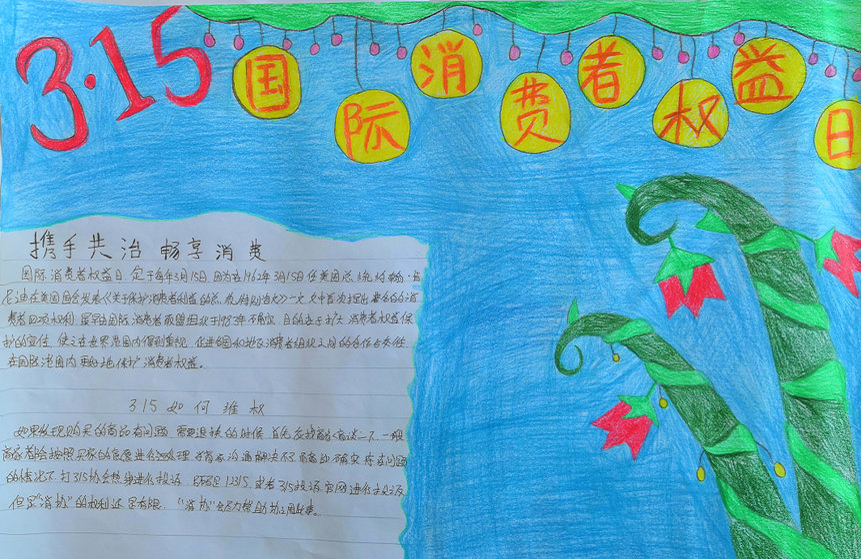 3·15
国际消费者权益日
携手共治 畅享消费
国际消费者权益日,定于每年3月15日,因为在1962年3月15日任美国总统约翰·
尼迪在美国国会发表《关于保护消费者利益的总统特别咨文》一文,文中首次提出著名的消
费者四项权利,最早由国际消费者联盟组织于1983年确定,目的在于扩大消费者权益保
护的宣传,使之在世界范围内得到重视,促进各国和地区消费者组织之间的合作与交往
在国际范围内更好地保护消费者权益。
315如何维权
如果发现购买的商品有问题,需要退换的时候,首先去找商家商谈一下,一般
商家都会按照买家的意愿进行处理,
的情况下,打315协会热线进行投诉,即12315,或者315投诉官网进行投诉
但是"消协"的权利还是有限,"消协"会尽力帮助协调此类。